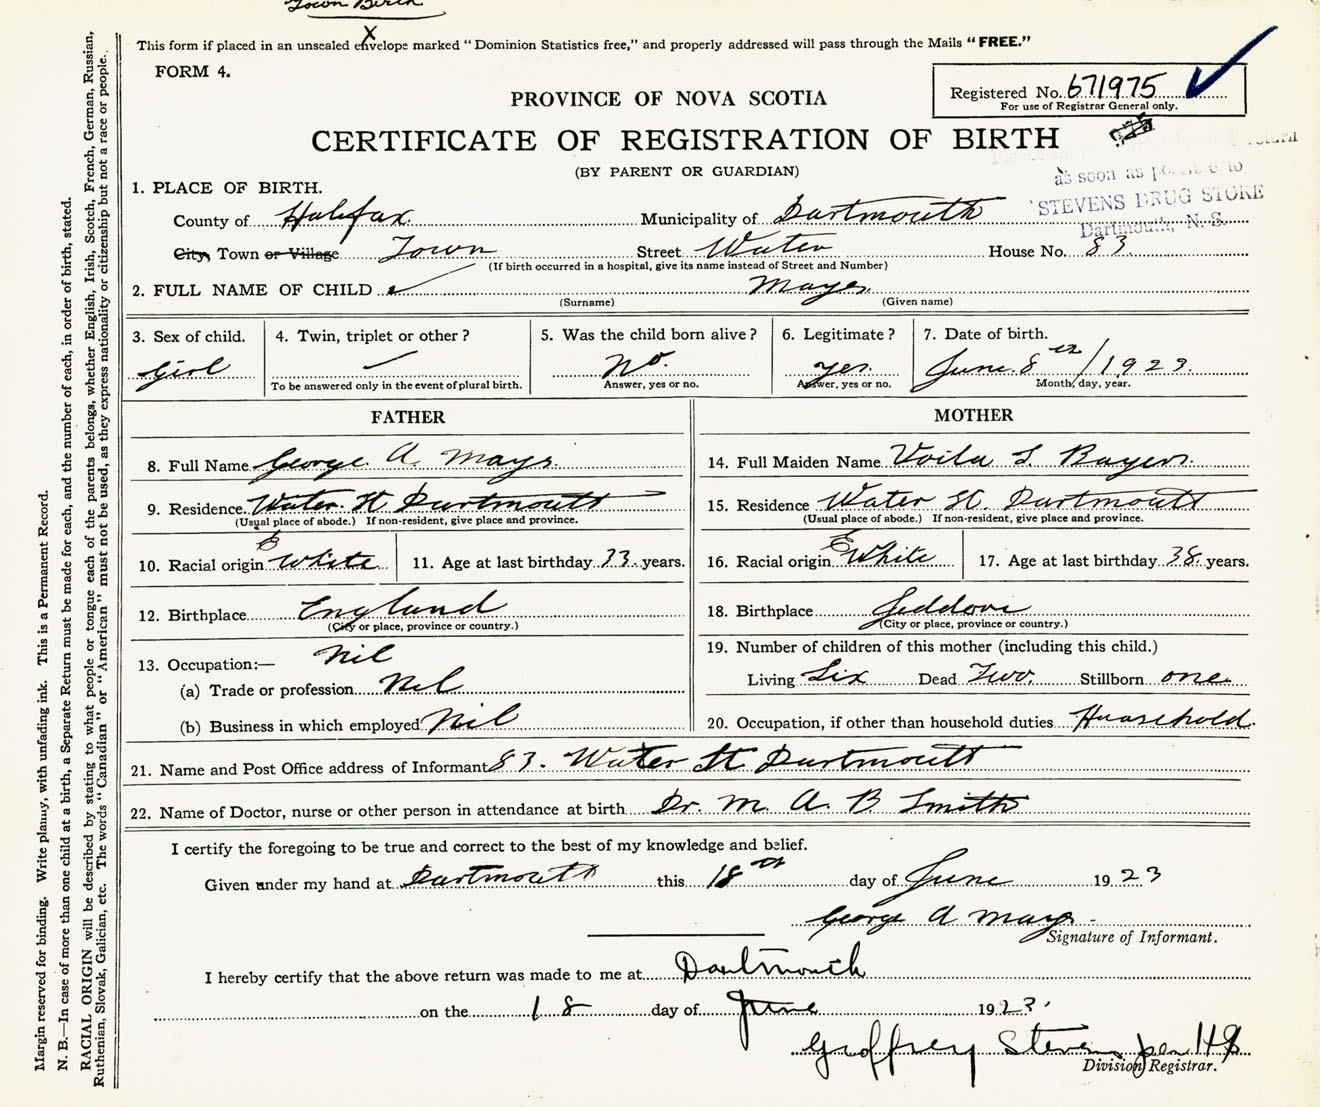 Town Birth
X
This form if placed in an unsealed envelope marked "Dominion Statistics free," and properly addressed will pass through the Mails "FREE."
FORM 4.
Registered No. 671975
For use of Registrar General only.
PROVINCE OF NOVA SCOTIA
CERTIFICATE OF REGISTRATION OF BIRTH
(BY PARENT OR GUARDIAN)
return
as soon as possible to
STEVENS DRUG STORE
Dartmouth, N. S.
1. PLACE OF BIRTH.
County of Halifax Municipality of Dartmouth
City, Town or Village Town Street Water House No. 83.
(If birth occurred in a hospital, give its name instead of Street and Number)
2. FULL NAME OF CHILD Mays
(Surname) (Given name)
3. Sex of child. 4. Twin, triplet or other? 5. Was the child born alive? 6. Legitimate? 7. Date of birth.
Girl — No. yes. June 8th/1923.
To be answered only in the event of plural birth. Answer, yes or no. Answer, yes or no. Month, day, year.
FATHER MOTHER
8. Full Name George A. Mays 14. Full Maiden Name Voila S. Bayers.
9. Residence. Water St Dartmouth 15. Residence Water St. Dartmouth
(Usual place of abode.) If non-resident, give place and province. (Usual place of abode.) If non-resident, give place and province.
E E
10. Racial origin White 11. Age at last birthday 33. years. 16. Racial origin White 17. Age at last birthday 38. years.
12. Birthplace England 18. Birthplace
(City or place, province or country.) (City or place, province or country.)
13. Occupation:— nil 19. Number of children of this mother (including this child.)
(a) Trade or profession Nil Living Six Dead Two. Stillborn one.
(b) Business in which employed Nil 20. Occupation, if other than household duties Household.
21. Name and Post Office address of Informant 83. Water St Dartmouth
22. Name of Doctor, nurse or other person in attendance at birth Dr. M. A. B Smith
I certify the foregoing to be true and correct to the best of my knowledge and belief.
Given under my hand at Dartmouth this 18th day of June 1923
George A Mays -
Signature of Informant.
I hereby certify that the above return was made to me at Dartmouth
on the 18 day of June 1923.
Geoffrey Stevens per
Division Registrar.
Margin reserved for binding. Write plainly, with unfading ink. This is a Permanent Record.
N. B.—In case of more than one child at a birth, a Separate Return must be made for each, and the number of each, in order of birth, stated.
RACIAL ORIGIN will be described by stating to what people or tongue each of the parents belongs, whether English, Irish, Scotch, French, German, Russian,
Ruthenian, Slovak, Galician, etc. The words "Canadian" or "American" must not be used, as they express nationality or citizenship but not a race or people.